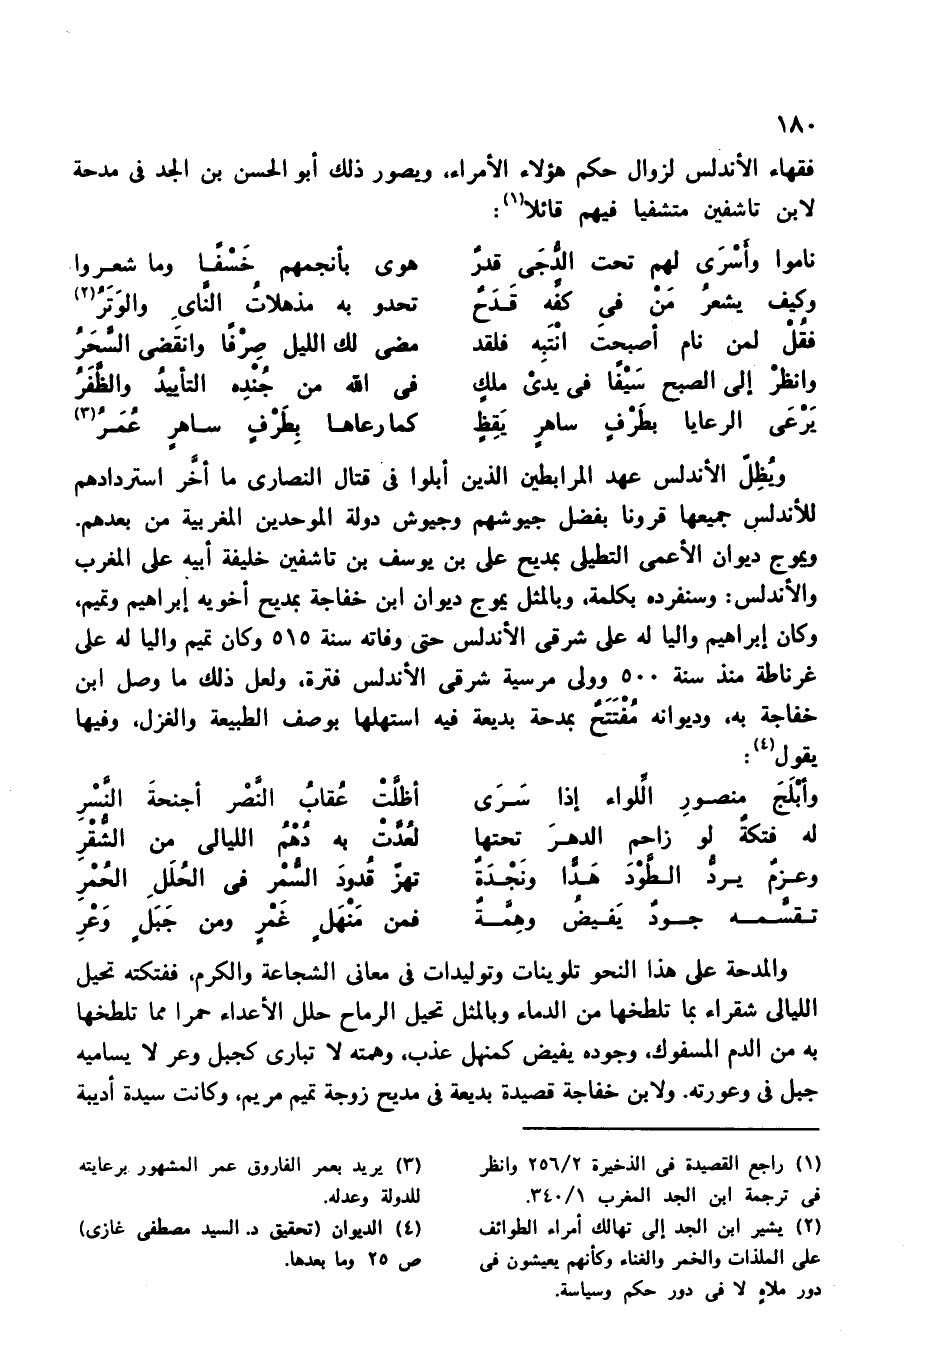 ١٨٠
فقهاء الأندلس لزوال حكم هؤلاء الأمراء، ويصور ذلك أبو الحسن بن الجد فى مدحة
لابن تاشفين متشفيا فيهم قائلا(١):
ناموا وأَسْرَى لهم تحت الدُّجَى قدرٌ هوى بأنجمهم خَسْفًا وما شعروا
وكيف يشعرُ مَنْ فى كفِّه قَدَحٌ تحدو به مذهلاتُ النَّاىِ والوَتَرُ(٢)
فقُلْ لمن نام أصبحتَ انْتَبِه فلقد مضى لك الليل صِرْفًا وانقضى السَّحَرُ
وانظرْ إلى الصبح سَيْفًا فى يدىْ ملكٍ فى الله من جُنْدِه التأييدُ والظَّفَرُ
يَرْعَى الرعايا بطَرْفٍ ساهرٍ يَقِظٍ كما رعاها بِطَرْفٍ ساهرٍ عُمَرُ(٣)
ويُظِلّ الأندلس عهد المرابطين الذين أبلوا فى قتال النصارى ما أخَّر استردادهم
للأندلس جميعها قرونا بفضل جيوشهم وجيوش دولة الموحدين المغربية من بعدهم.
ويموج ديوان الأعمى التطيلى بمديح على بن يوسف بن تاشفين خليفة أبيه على المغرب
والأندلس: وسنفرده بكلمة، وبالمثل يموج ديوان ابن خفاجة بمديح أخويه إبراهيم وتميم،
وكان إبراهيم واليا له على شرقى الأندلس حتى وفاته سنة ٥١٥ وكان تميم واليا له على
غرناطة منذ سنة ٥٠٠ وولى مرسية شرقى الأندلس فترة، ولعل ذلك ما وصل ابن
خفاجة به، وديوانه مُفْتَتَحٌ بمدحة بديعة فيه استهلها بوصف الطبيعة والغزل، وفيها
يقول(٤):
وأَبْلَجَ منصورِ اللَّواء إذا سَرَى أظلَّتْ عُقابُ النَّصْر أجنحةَ النَّسْرِ
له فتكةٌ لو زاحم الدهرَ تحتها لعُدَّتْ به دُهْمُ الليالى من الشُّقْرِ
وعزمٌ يردُّ الطَّوْدَ هَدًّا ونَجْدَةٌ تهزّ قُدودَ السُّمْر فى الحُلَلِ الحُمْرِ
تقسَّمه جودٌ يَفيضُ وهِمَّةٌ فمن مَنْهَلٍ غَمْرٍ ومن جَبَلٍ وَعْرِ
والمدحة على هذا النحو تلوينات وتوليدات فى معانى الشجاعة والكرم، ففتكته تحيل
الليالى شقراء بما تلطخها من الدماء وبالمثل تحيل الرماح حلل الأعداء حمرا مما تلطخها
به من الدم المسفوك، وجوده يفيض كمنهل عذب، وهمته لا تبارى كجبل وعر لا يساميه
جبل فى وعورته. ولابن خفاجة قصيدة بديعة فى مديح زوجة تميم مريم، وكانت سيدة أديبة
(١) راجع القصيدة فى الذخيرة ٢٥٦/٢ وانظر
فى ترجمة ابن الجد المغرب ٣٤٠/١.
(٢) يشير ابن الجد إلى تهالك أمراء الطوائف
على الملذات والخمر والغناء وكأنهم يعيشون فى
دور ملاهٍ لا فى دور حكم وسياسة.
(٣) يريد بعمر الفاروق عمر المشهور برعايته
للدولة وعدله.
(٤) الديوان (تحقيق د. السيد مصطفى غازى)
ص ٢٥ وما بعدها.